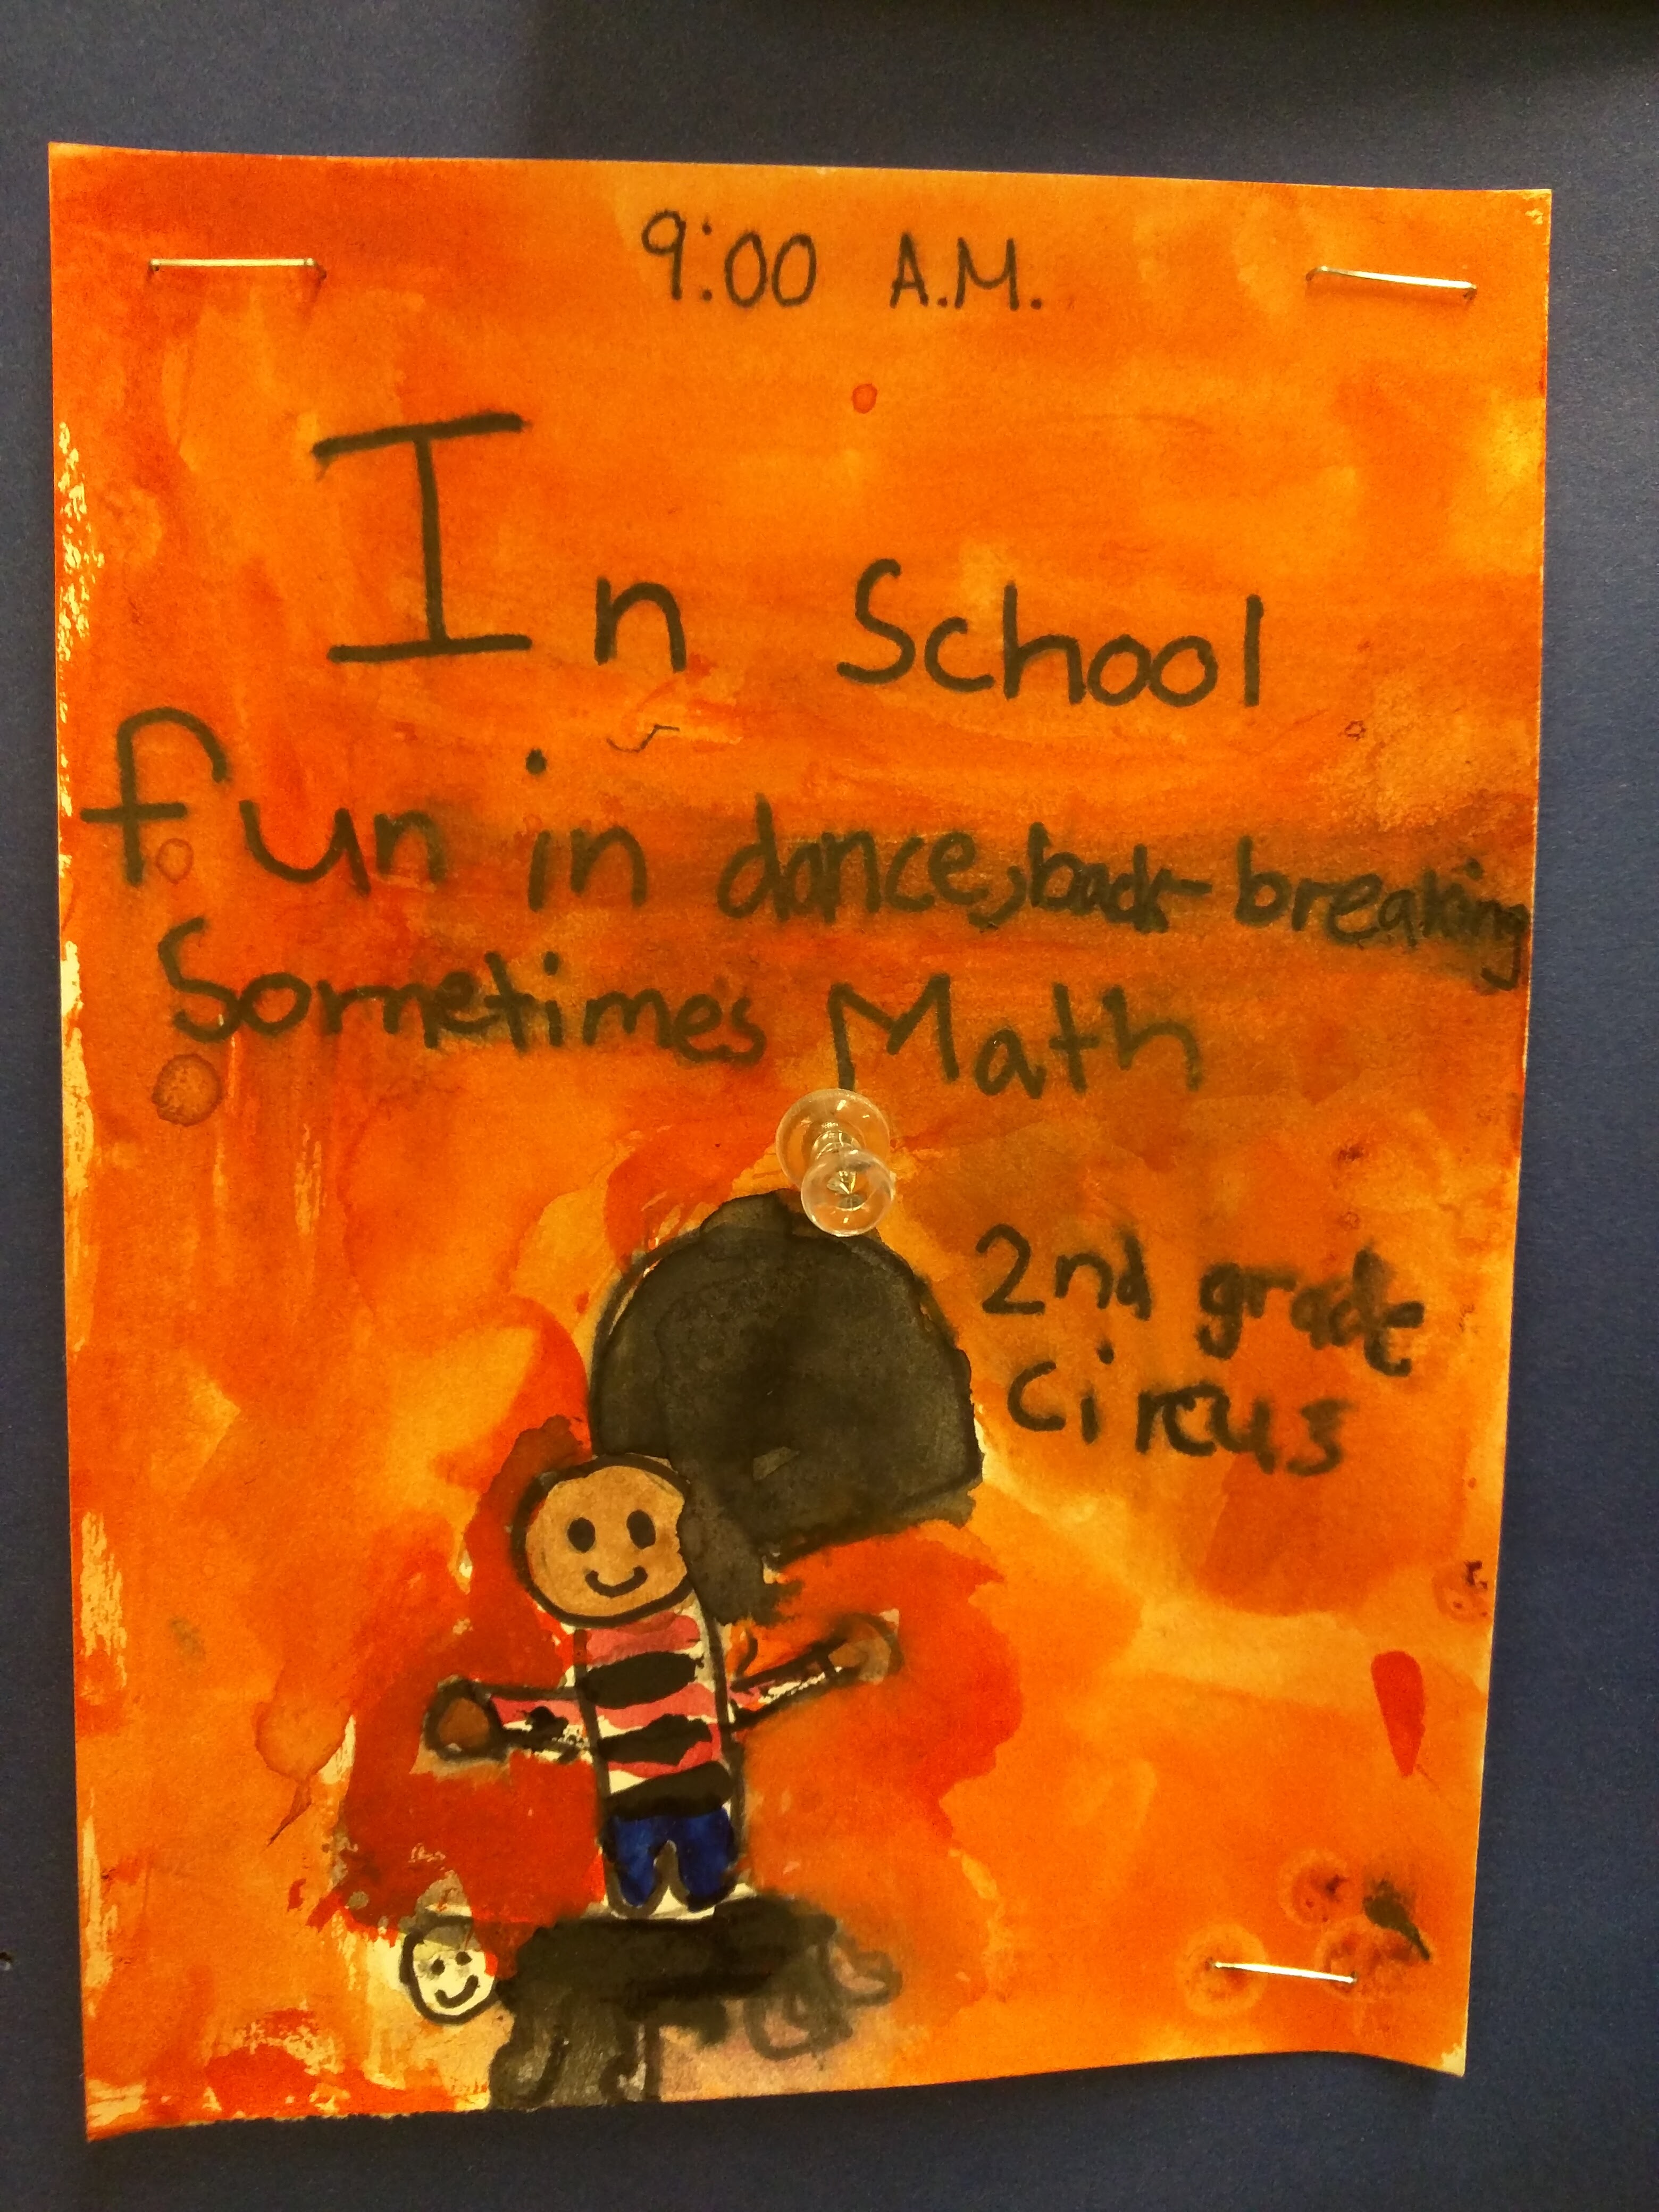 9:00 A.M.
In School
fun in dance, back-breaking
Sometimes Math
2nd grade
circus